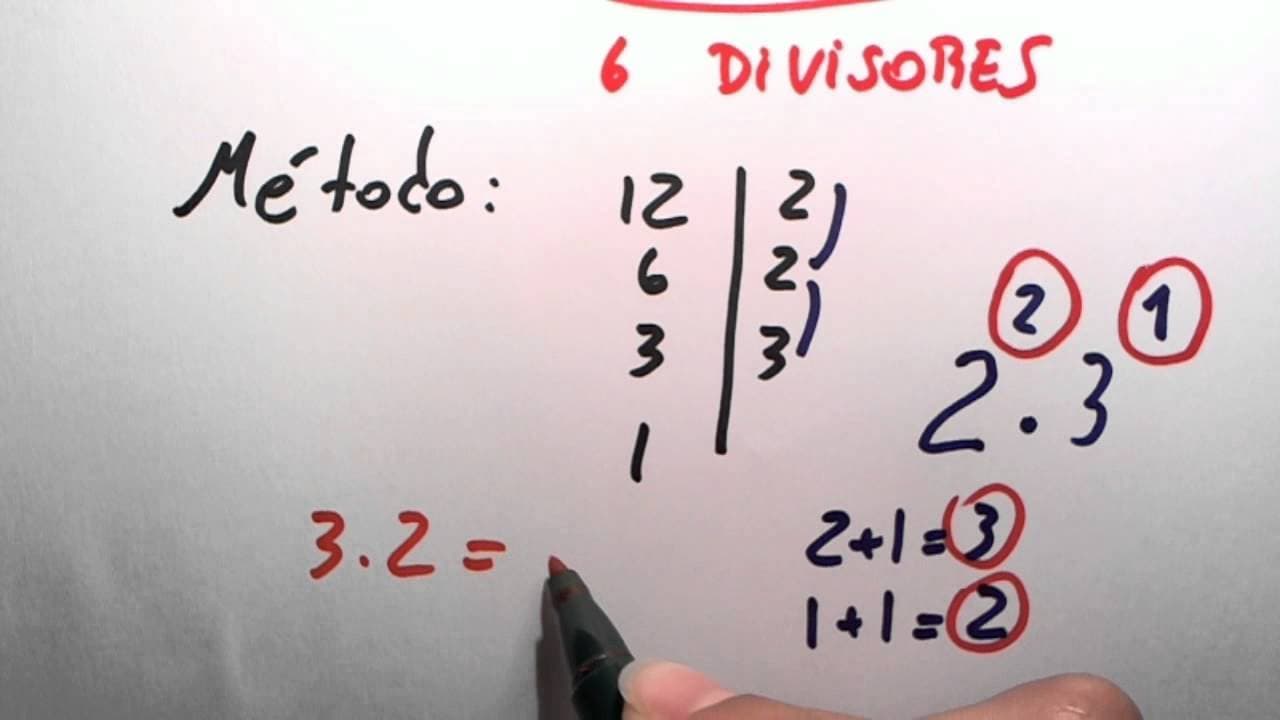 6 DIVISORES
Método:
12 | 2
6 | 2
3 | 3
1 |
2² . 3¹
3.2 =
2+1=3
1+1=2